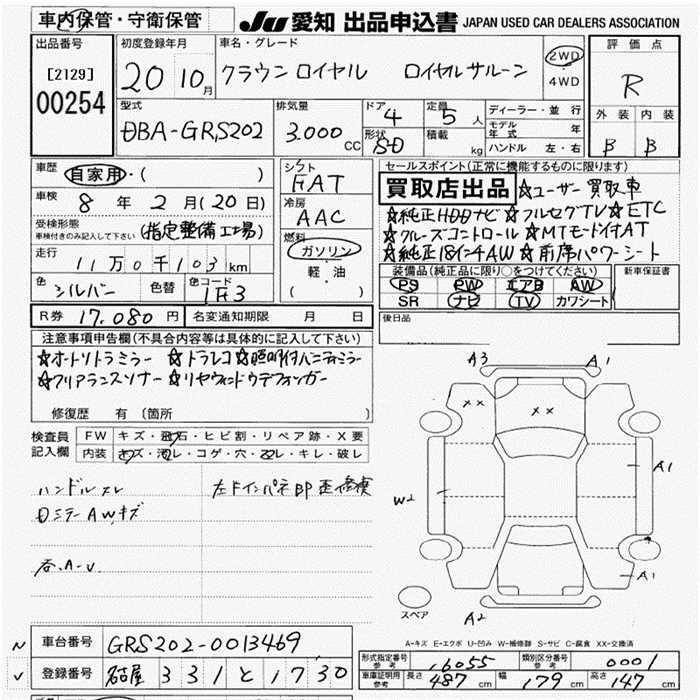 車内保管・守衛保管
JU 愛知 出品申込書 JAPAN USED CAR DEALERS ASSOCIATION
出品番号
[2129]
00254
初度登録年月
20 10月
車名・グレード
クラウン ロイヤル ロイヤルサルーン
2WD
4WD
評価点
R
外装 内装
B B
型式
DBA-GRS202
排気量
3.000 CC
ドア 4
形状 SD
定員 5 人
積載 kg
ディーラー・並 行
モデル年式 年
ハンドル 左・右
車歴
自家用・( )
車検 8 年 2 月(20日)
受検形態
車検付きのみ記入して下さい
(指定整備工場)
走行
11万0千103km
色 シルバー 色替 色コード 1F3
シフト
FAT
冷房
AAC
燃料
ガソリン
軽・油
( )
セールスポイント(正常に機能するものに限ります)
買取店出品 ☆ユーザー買取車
☆純正HDDナビ ☆フルセグTV ☆ETC
☆クルーズコントロール ☆MTモード付AT
☆純正18インチAW ☆前席パワーシート
装備品(純正品に限り○をつけてください)
PS PW エアB AW
SR ナビ TV カワシート
新車保証書
後日品
R券 17.080円 名変通知期限 月 日
注意事項申告欄(不具合内容等は具体的に記入して下さい)
☆オートソトラミラー ☆ドラレコ ☆照明付バニティミラー
☆クリアランスソナー ☆リヤウィンドウデフォッガー
修復歴 有(箇所 )
検査員記入欄
FW キズ・飛石・ヒビ割・リペア跡・X要
内装 キズ・汚レ・コゲ・穴・スレ・キレ・破レ
ハンドルスレ
左ドインパネ
ミラーAWキズ
A3 A1
XX XX
A1
W2
A1
A2
スペア
A-キズ E-エクボ U-凹み W-補修跡 S-サビ C-腐食 XX-交換済
車台番号 GRS202-0013469
登録番号 名古屋 331 と 1730
形式指定番号 参考 16055
類別区分番号 参考 0001
車庫証明用 参考 長さ 487 cm 幅 179 cm 高さ 147 cm